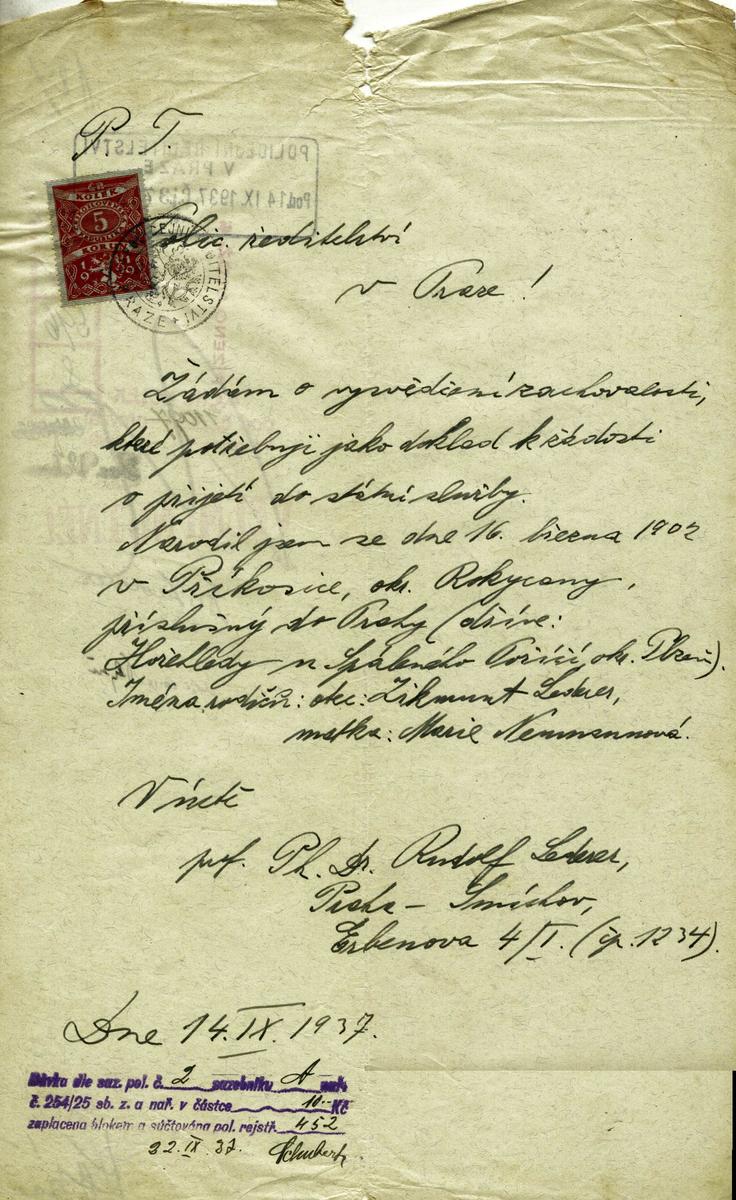 P. T.
Polic. ředitelství
v Praze!
KOLEK
5
KORUN
1919
Žádám o vysvědčení zachovalosti,
které potřebuji jako doklad k žádosti
o přijetí do státní služby.
Narodil jsem se dne 16. března 1902
v Příkosice, okr. Rokycany,
příslušný do Prahy (dříve:
Hořehledy u Spáleného Poříčí, okr. Plzeň).
Jména rodičů: otec: Zikmunt Lederer,
matka: Marie Neumannová.
V úctě
prof. Ph. Dr. Rudolf Lederer,
Praha – Smíchov,
Erbenova 4/I. (čp. 1234).
Dne 14. IX. 1937.
Dávka dle saz. pol. č. 2 sazebníku A nař.
č. 254/25 sb. z. a nař. v částce 10.- Kč
zaplacena blokem a súčtována pol. rejstř. 452
22. IX. 37. Schubert